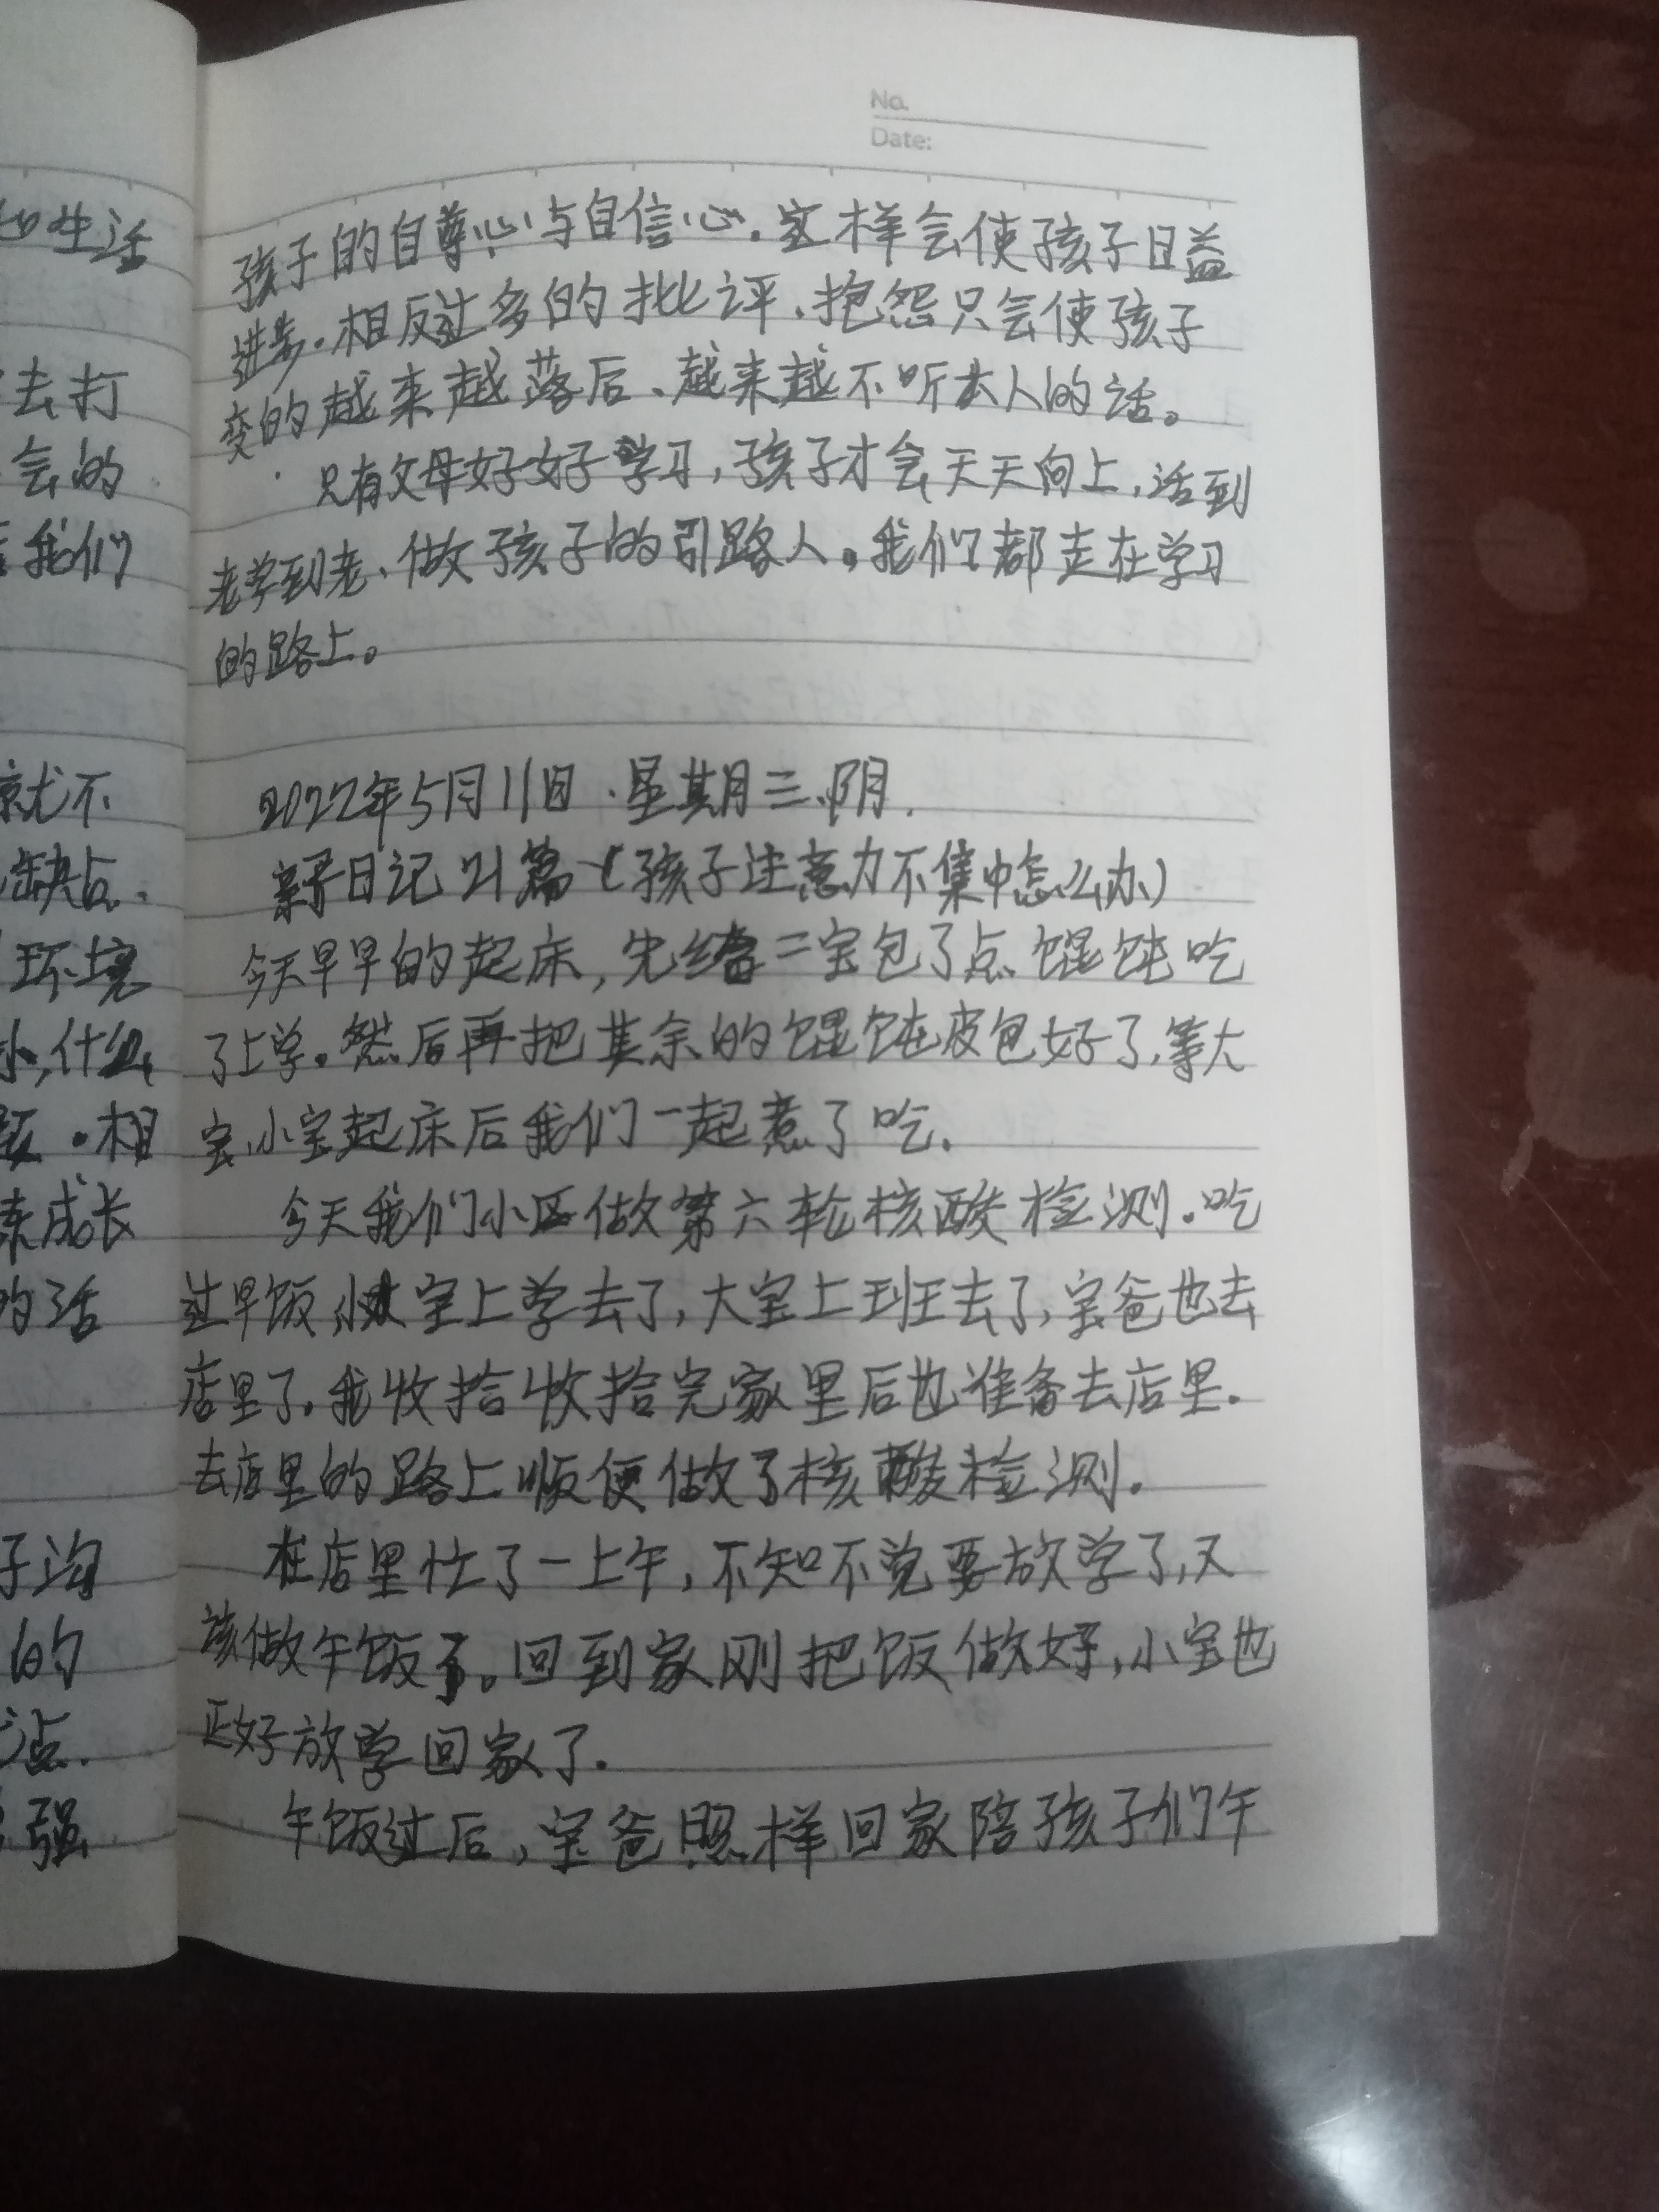 No.
Date:
孩子的自尊心与自信心.这样会使孩子日益
进步.相反过多的批评、抱怨只会使孩子
变的越来越落后、越来越不听大人的话。
只有父母好好学习,孩子才会天天向上,活到
老学到老、做孩子的引路人。我们都走在学习
的路上。
2022年5月11日.星期三.阴.
亲子日记21篇(孩子注意力不集中怎么办)
今天早早的起床,先给二宝包了点馄饨吃
了上学.然后再把其余的馄饨皮包好了,等大
宝、小宝起床后我们一起煮了吃.
今天我们小区做第六轮核酸检测.吃
过早饭,小宝上学去了,大宝上班去了,宝爸也去
店里了.我收拾收拾完家里后也准备去店里.
去店里的路上顺便做了核酸检测.
在店里忙了一上午,不知不觉要放学了,又
该做午饭了。回到家刚把饭做好,小宝也
正好放学回家了.
午饭过后,宝爸照样回家陪孩子们午
生活
去打
会的
我们
就不
缺点.
环境
小,什么
.相
成长
的话
子沟
的
强